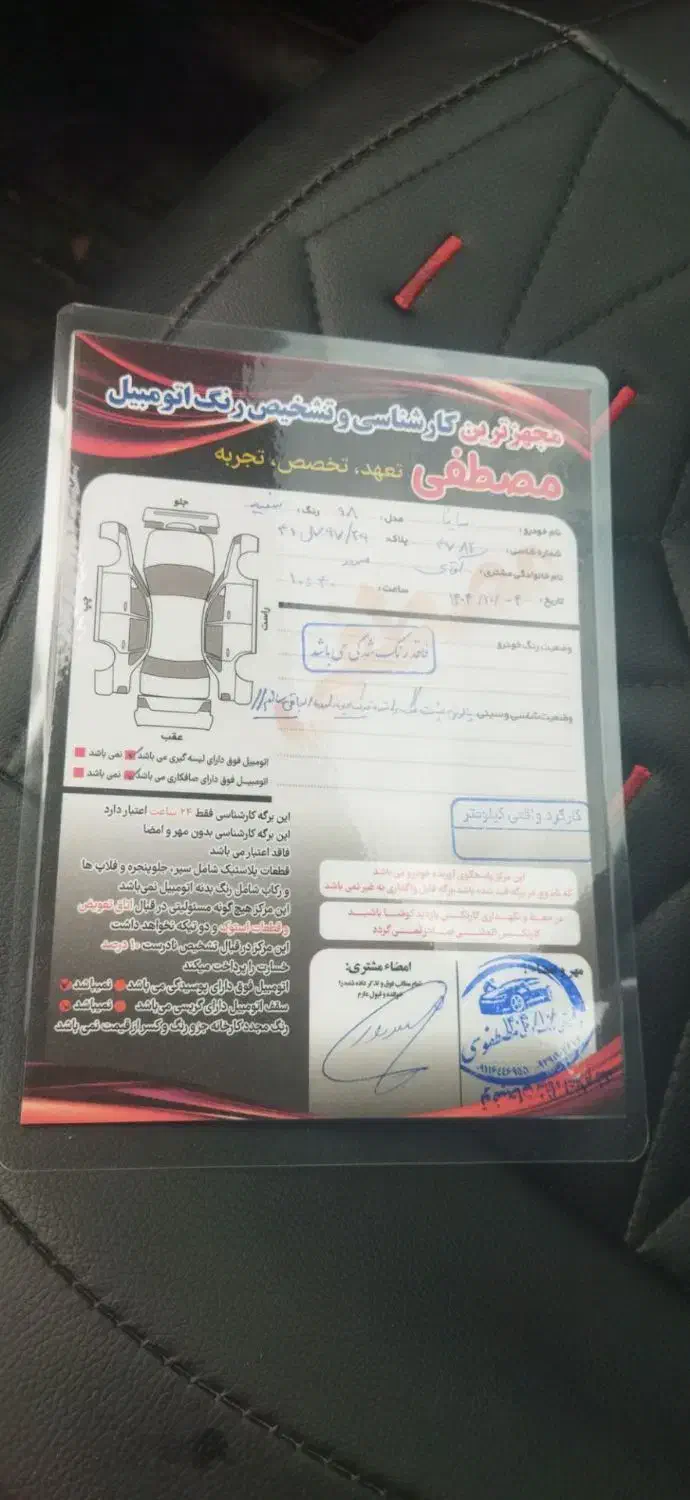 مجهزترین کارشناسی و تشخیص رنگ اتومبیل
مصطفی تعهد، تخصص، تجربه
نام خودرو: ساینا مدل: ۹۸ رنگ: سفید
شماره شاسی: پلاک:
نام خانوادگی مشتری:
تاریخ: ۱۴۰۴/۱۰/۰۴ ساعت: ۱۰:۴۰
جلو
چپ
راست
عقب
وضعیت رنگ خودرو
فاقد رنگ شدگی می باشد
وضعیت شاسی و سینی
اتومبیل فوق دارای لیسه گیری می باشد نمی باشد
اتومبیل فوق دارای صافکاری می باشد نمی باشد
کارکرد واقعی کیلومتر
این برگه کارشناسی فقط ۲۴ ساعت اعتبار دارد
این برگه کارشناسی بدون مهر و امضا
فاقد اعتبار می باشد
قطعات پلاستیک شامل سپر، جلوپنجره و فلاپ ها
و رکاب شامل رنگ بدنه اتومبیل نمی باشد
این مرکز هیچ گونه مسئولیتی در قبال اتاق تعویض
و قطعات استوک و دو تیکه نخواهد داشت
این مرکز در قبال تشخیص نادرست ۱۰ درصد
خسارت را پرداخت میکند
اتومبیل فوق دارای پوسیدگی می باشد نمیباشد
سقف اتومبیل دارای گریس می باشد نمیباشد
رنگ مجدد کارخانه جزو رنگ و کسر از قیمت نمی باشد
این مرکز پاسخگوی آورنده خودرو می باشد
که نام وی در برگه قید شده باشد برگه قابل واگذاری به غیر نمی باشد
در حفظ و نگهداری کارتکس بازدید کوشا باشید
کارتکس المثنی صادر نمی گردد
امضاء مشتری:
تمام مطالب فوق و تذکر داده شده را
خوانده و قبول دارم
مهر و امضاء: